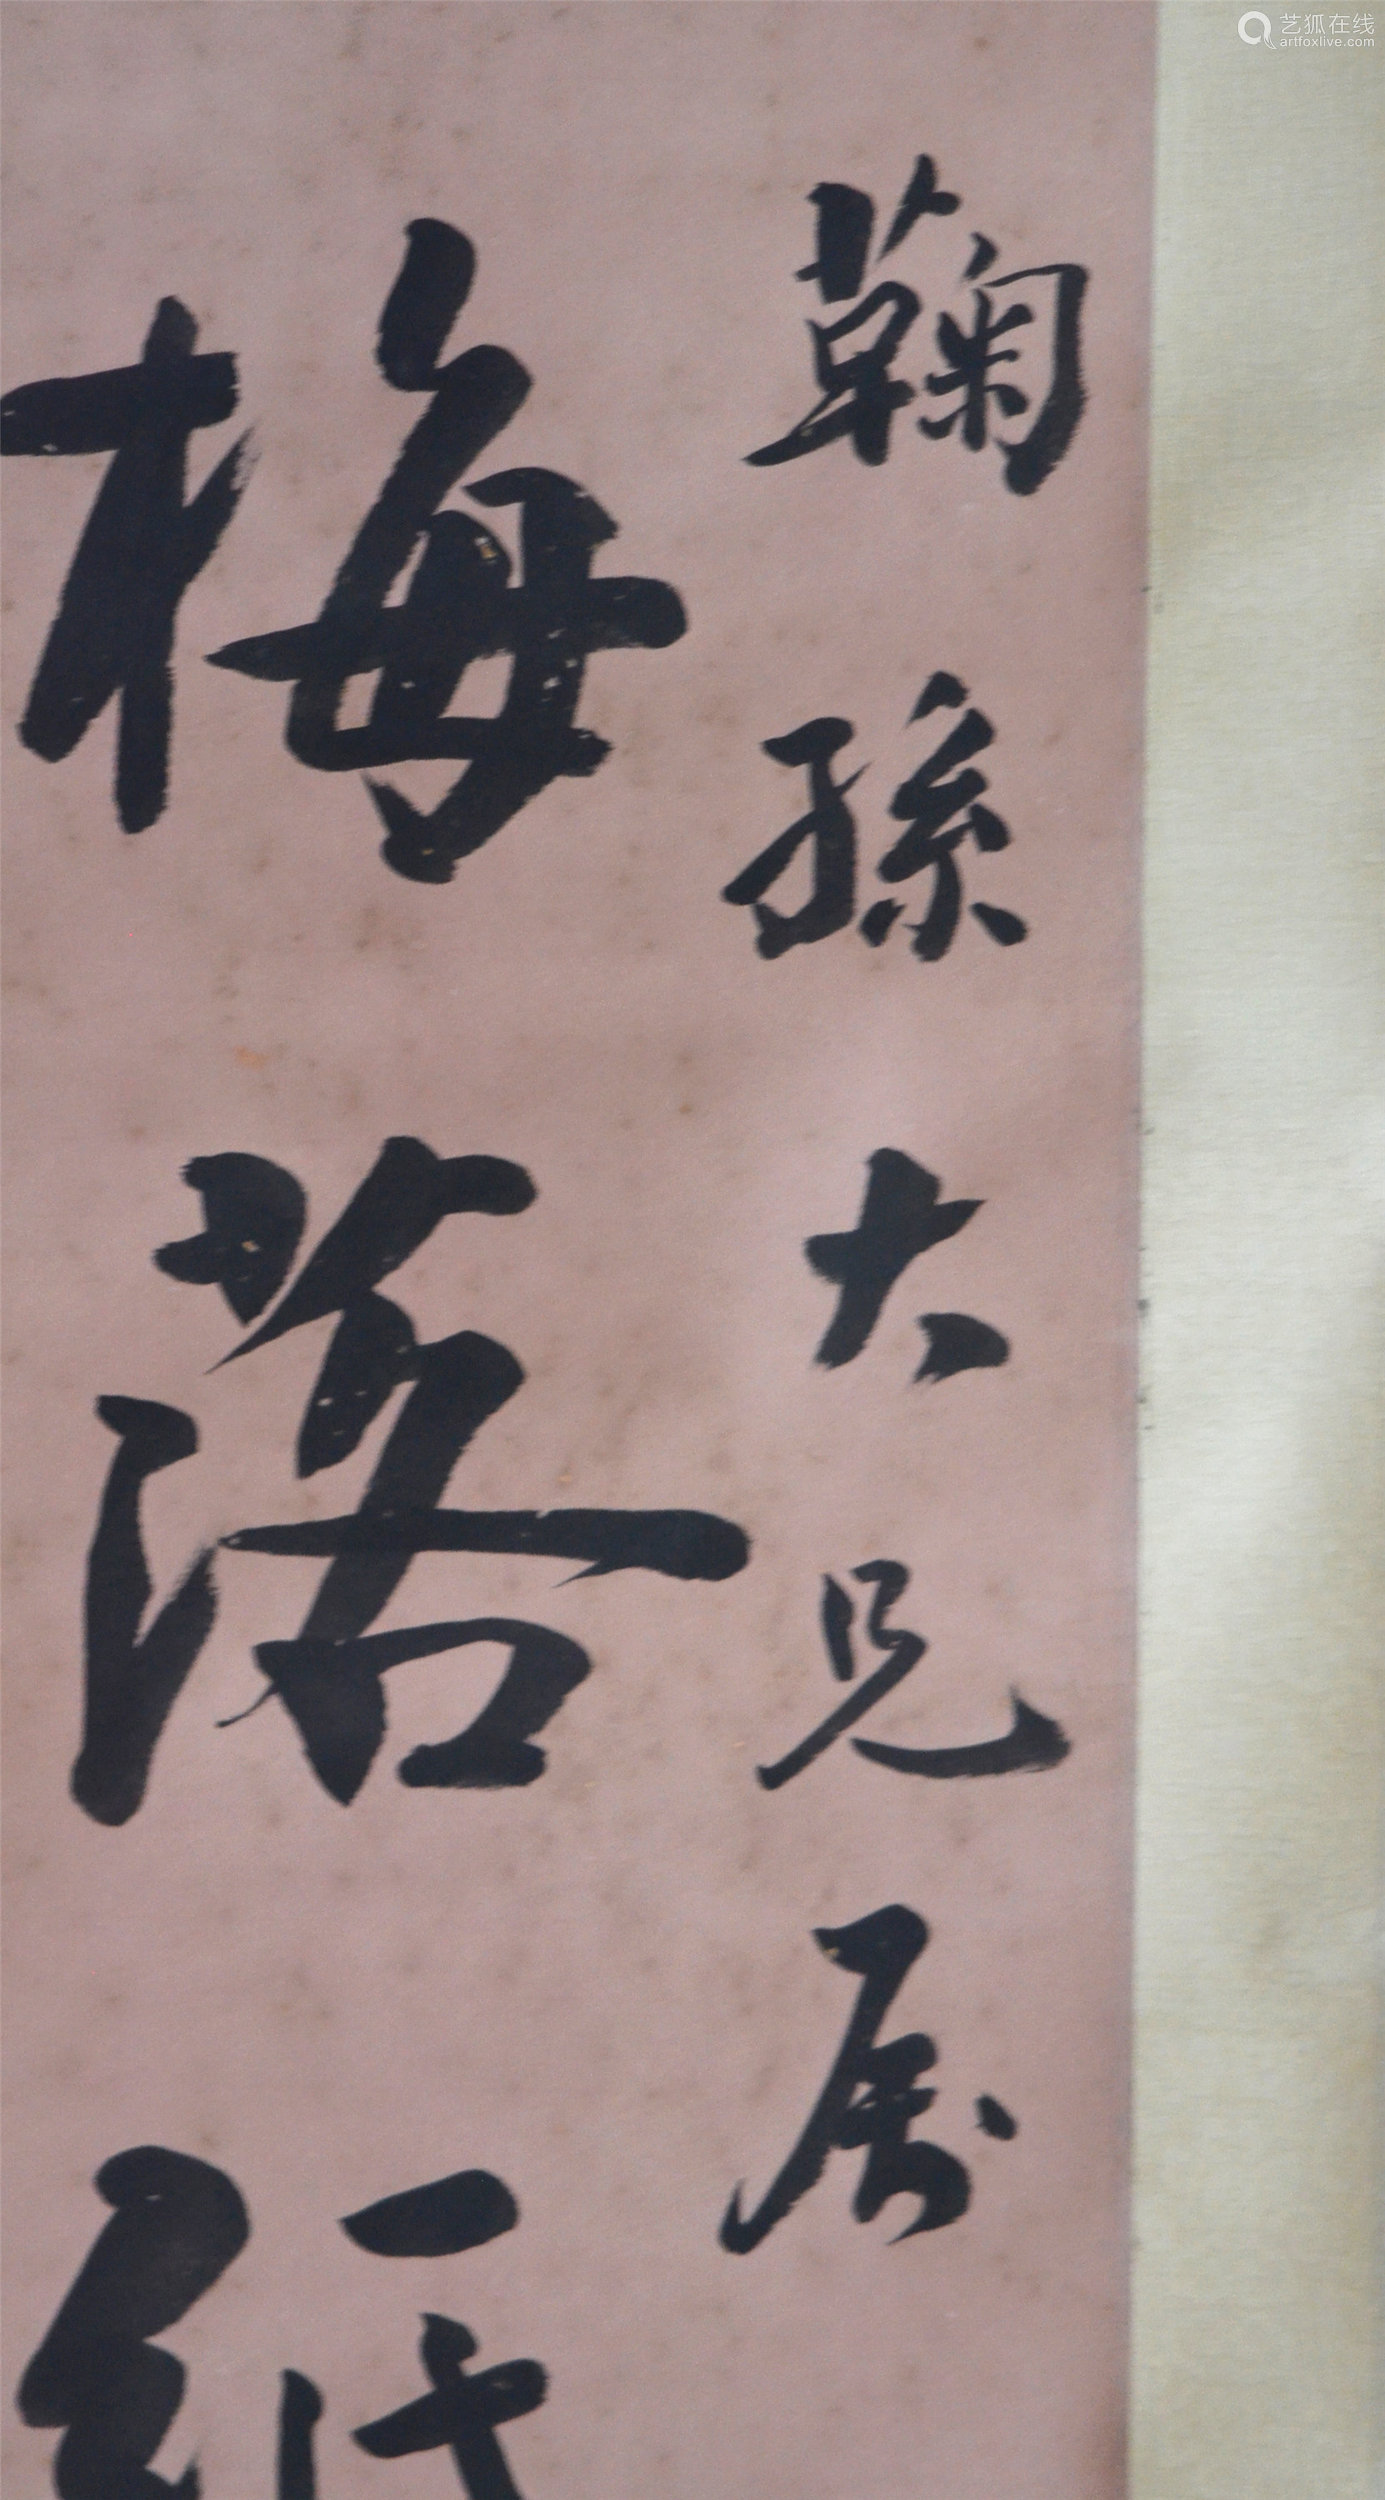 艺狐在线
artfoxlive.com
鞠孫大兄属
梅落